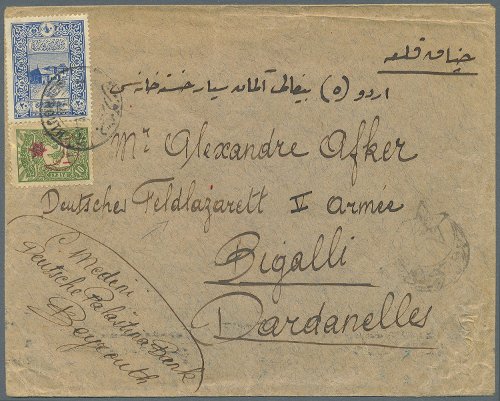 چناق قلعه
اردو (٥) بیغالی آلمان سیار خسته خانه سی
Mr Alexandre Afker
Deutsches Feldlazarett V armée
Bigalli
Dardanelles
C. Medini
Deutsche Palästina Bank
Beyrouth
10